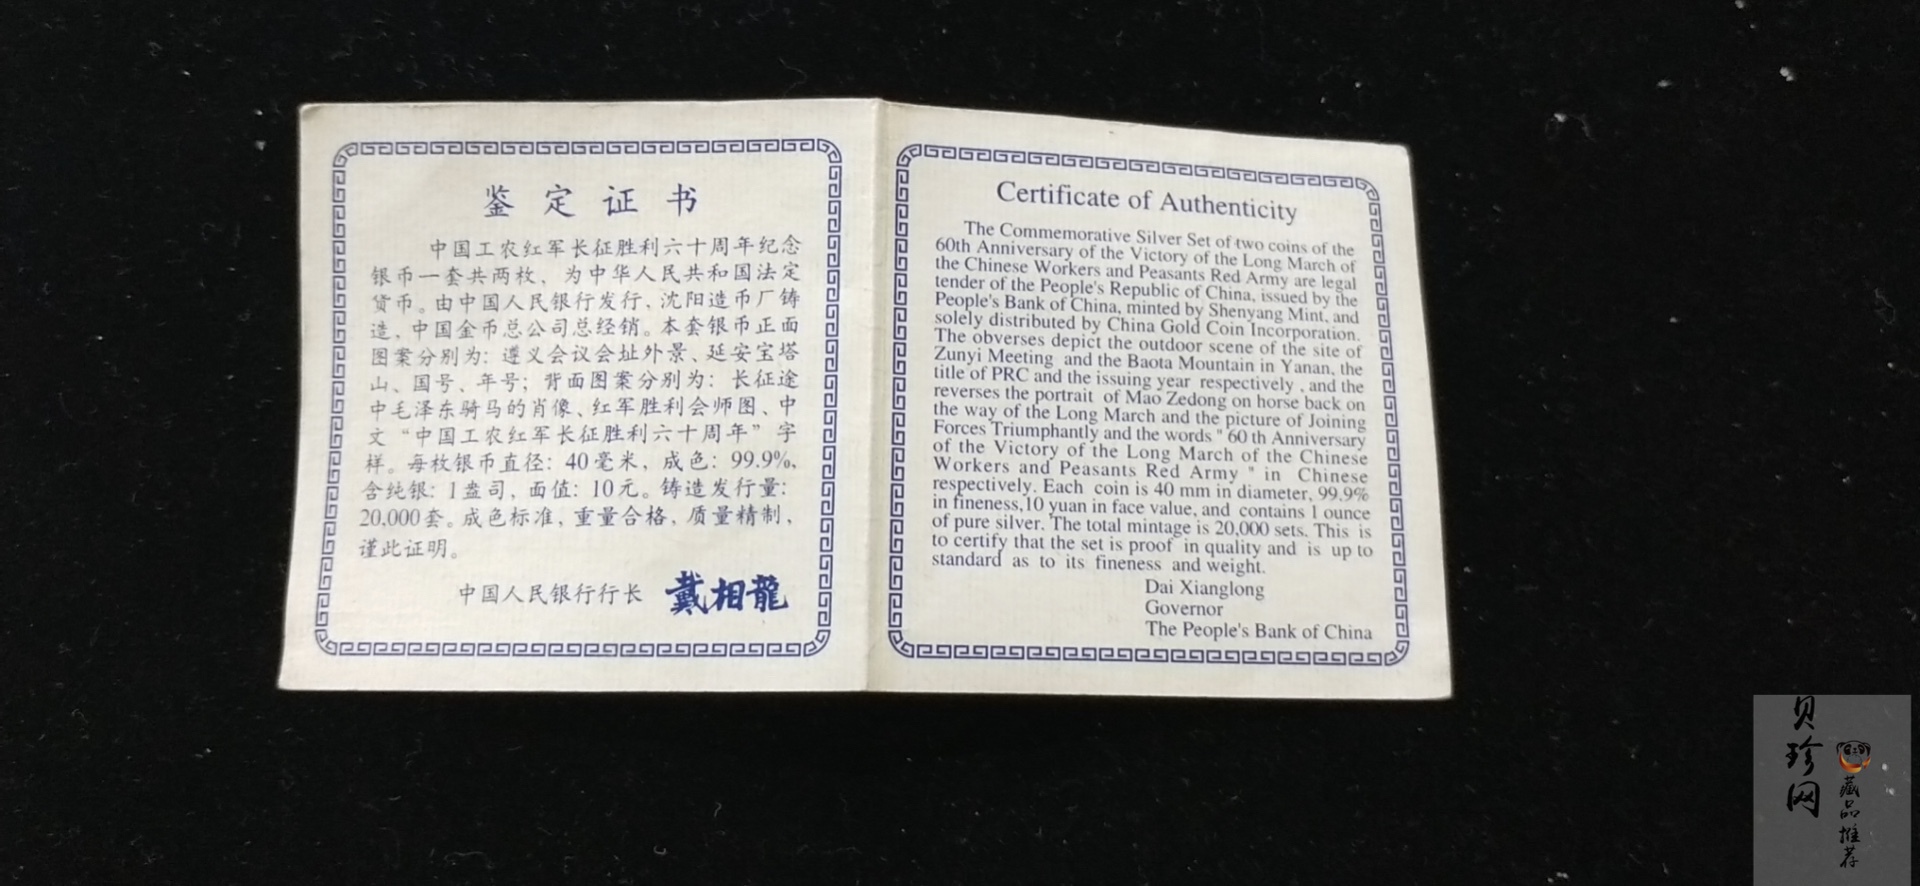 鉴定证书
中国工农红军长征胜利六十周年纪念
银币一套共两枚，为中华人民共和国法定
货币。由中国人民银行发行，沈阳造币厂铸
造，中国金币总公司总经销。本套银币正面
图案分别为：遵义会议会址外景、延安宝塔
山、国号、年号；背面图案分别为：长征途
中毛泽东骑马的肖像、红军胜利会师图、中
文“中国工农红军长征胜利六十周年”字
样。每枚银币直径：40毫米，成色：99.9%，
含纯银：1盎司，面值：10元。铸造发行量：
20,000套。成色标准，重量合格，质量精制，
谨此证明。
中国人民银行行长 戴相龍
Certificate of Authenticity
The Commemorative Silver Set of two coins of the
60th Anniversary of the Victory of the Long March of
the Chinese Workers and Peasants Red Army are legal
tender of the People's Republic of China, issued by the
People's Bank of China, minted by Shenyang Mint, and
solely distributed by China Gold Coin Incorporation.
The obverses depict the outdoor scene of the site of
Zunyi Meeting and the Baota Mountain in Yanan, the
title of PRC and the issuing year respectively , and the
reverses the portrait of Mao Zedong on horse back on
the way of the Long March and the picture of Joining
Forces Triumphantly and the words " 60 th Anniversary
of the Victory of the Long March of the Chinese
Workers and Peasants Red Army " in Chinese
respectively. Each coin is 40 mm in diameter, 99.9%
in fineness,10 yuan in face value, and contains 1 ounce
of pure silver. The total mintage is 20,000 sets. This is
to certify that the set is proof in quality and is up to
standard as to its fineness and weight.
Dai Xianglong
Governor
The People's Bank of China
贝珍网
藏品推荐